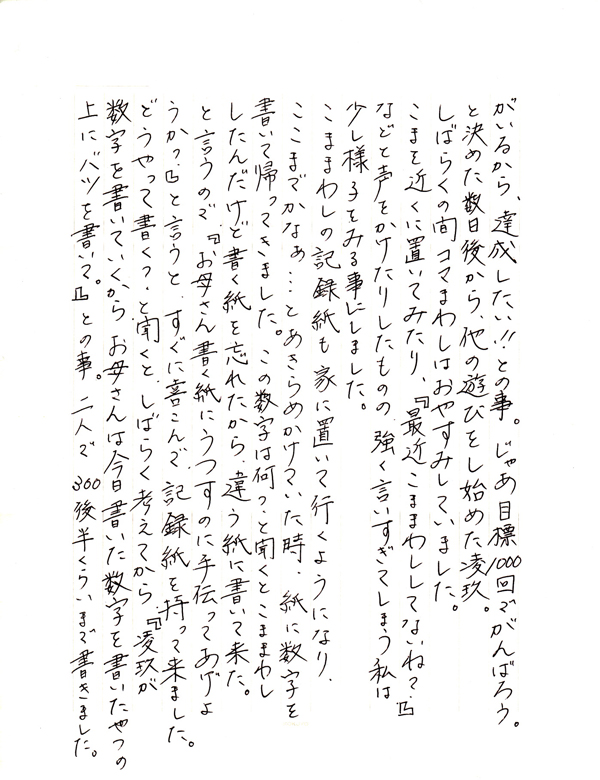 がいるから、達成したい!!との事。じゃあ目標1000回でがんばろう。
と決めた数日後から、他の遊びをし始めた凌玖。
しばらくの間コマまわしはおやすみしていました。
こまを近くに置いてみたり、『最近こままわししてないね?』
などと声をかけたりしたものの、強く言いすぎてしまう私は
少し様子をみる事にしました。
こままわしの記録紙も家に置いて行くようになり、
ここまでかなぁ…とあきらめかけていた時、紙に数字を
書いて帰ってきました。この数字は何?と聞くとこままわし
したんだけど書く紙を忘れたから、違う紙に書いて来た。
と言うので、『お母さん書く紙にうつすのに手伝ってあげよ
うか?』と言うと、すぐに喜こんで、記録紙を持って来ました。
どうやって書く?と聞くと、しばらく考えてから『凌玖が
数字を書いていくから、お母さんは今日書いた数字を書いたやつの
上にバツを書いて。』との事。二人で300後半くらいまで書きました。